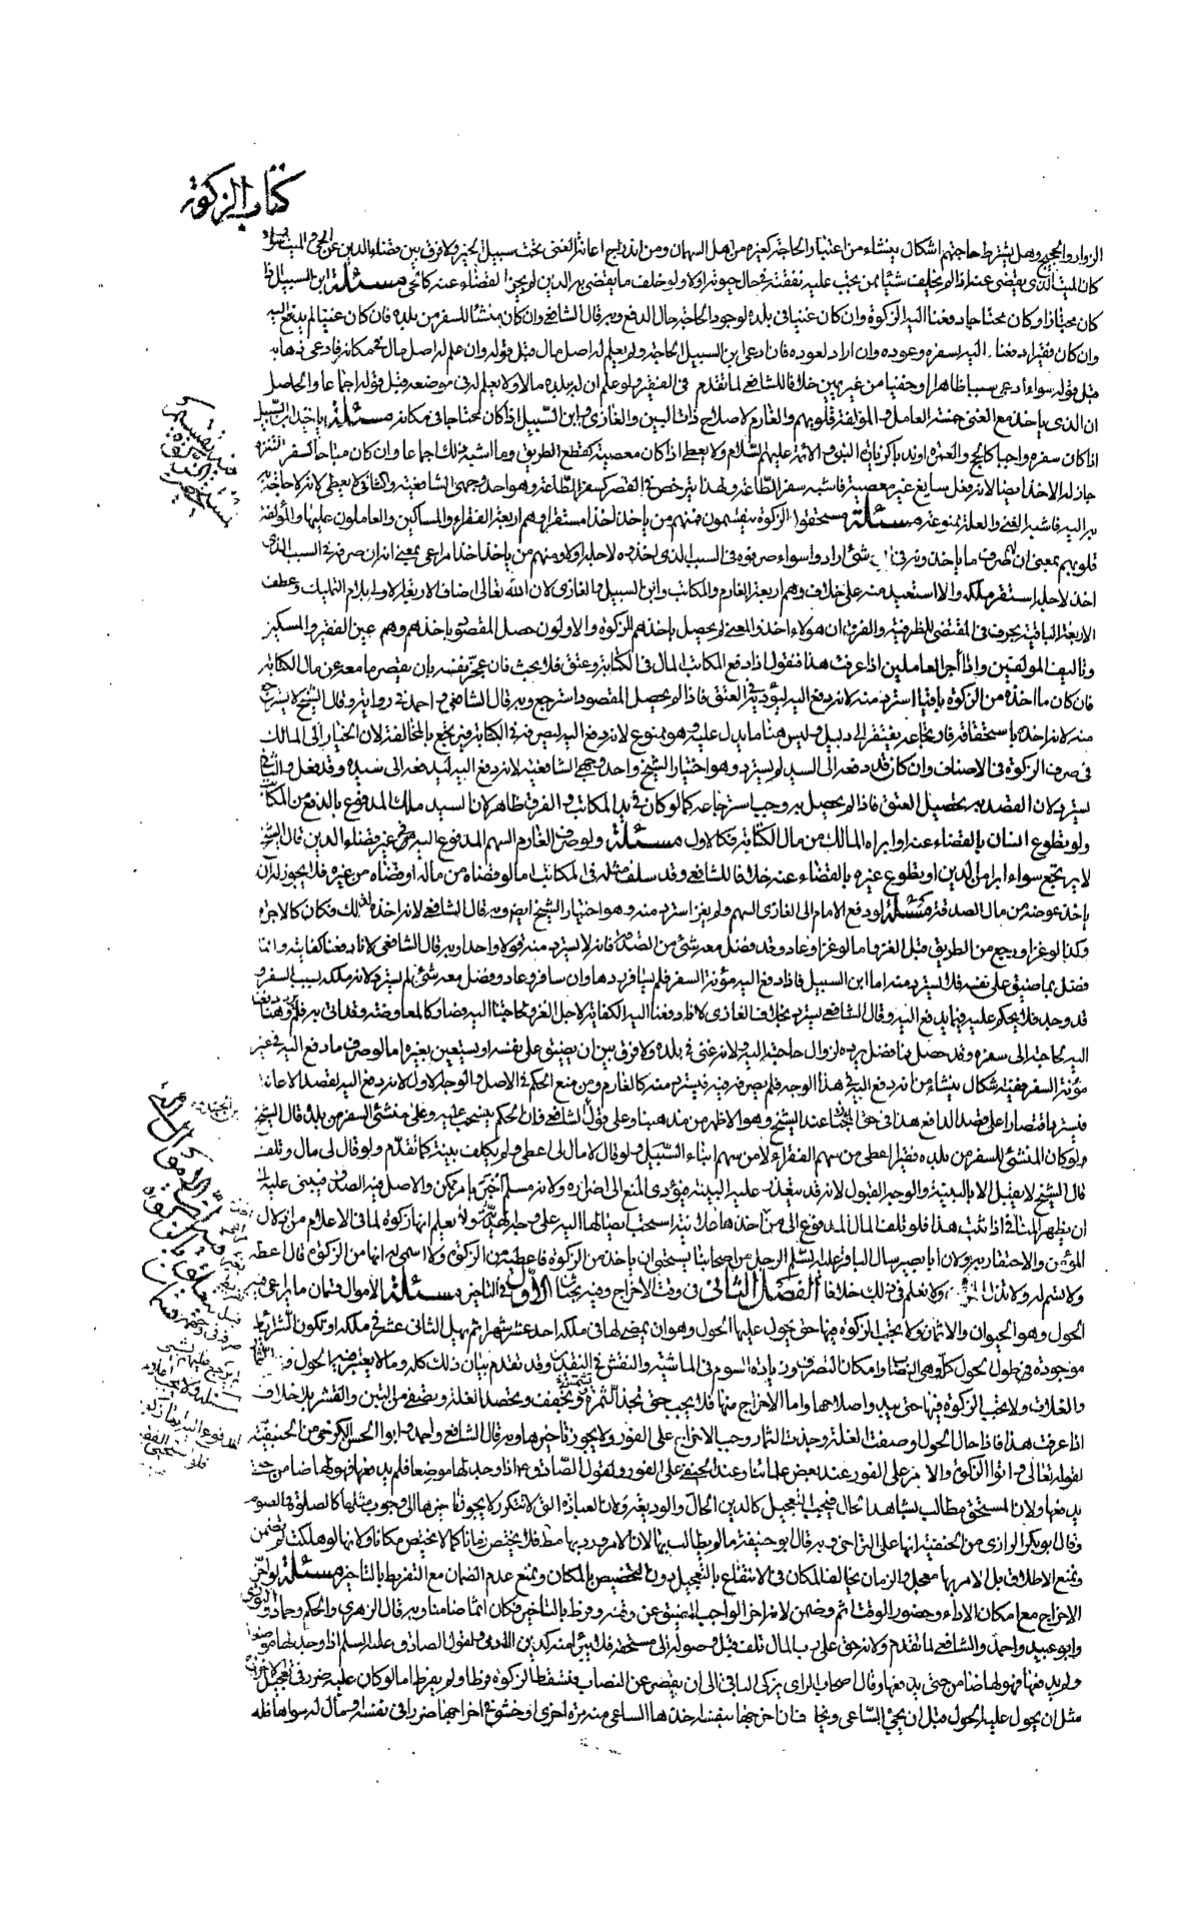 كتاب الزكوة
الزوار والحجيج وهل يشترط حاجتهم اشكال ينشاء من اعتبار الحاجة كغيره من اهل السهمان ومن اندراج اعانة الغني تحت سبيل الخير ولا فرق بين قضاء الدين عن الحي والميت سواء
كان الميت الذي يقضى عنه اذا لم يخلف شيئا ممن تجب عليه نفقته في حال حيوته اولا ولو خلف ما يقضى به الدين لم يجز القضاء عنه كالحي مسئلة ابن السبيل اذا
كان مجتازا وكان محتاجا دفعنا اليه الزكوة وان كان غنيا في بلده لوجود الحاجة حال الدفع وبه قال الشافعي وان كان منشئا للسفر من بلده فان كان غنيا لم يدفع اليه
وان كان فقيرا دفعنا اليه لسفره وعوده وان اراد لعوده فان ادعى ابن السبيل الحاجة ولم يعلم له اصل مال قبل قوله وان علم له اصل مال في مكانه فادعى ذهابه
قبل قوله سواء ادعى سببا ظاهرا او خفيا من غير يمين خلافا للشافعي لما تقدم في الفقير ولو علم ان له ببلده مالا ولا يعلم له في موضعه قبل قوله اجماعا والحاصل
ان الذي ياخذ مع الغنى خمسة العامل والمؤلفة قلوبهم والغارم لاصلاح ذات البين والغازي وابن السبيل اذا كان محتاجا في مكانه مسئلة ياخذ ابن السبيل
اذا كان سفره واجبا كالحج والعمرة او ندبا كزيارة النبي والائمة عليهم السلام ولا يعطى اذا كان معصية كقطع الطريق وما اشبه ذلك اجماعا وان كان مباحا كسفر التنزه
جاز له الاخذ ايضا لانه فعل سايغ غير معصية فاشبه سفر الطاعة ولهذا يترخص في القصر كسفر الطاعة وهو احد وجهي الشافعية والثاني لا يعطى لانه لا حاجة
به اليه فاشبه الغني والعلة ممنوعة مسئلة مستحقوا الزكوة ينقسمون فمنهم من ياخذ اخذا مستقرا وهم اربعة الفقراء والمساكين والعاملون عليها والمؤلفة
قلوبهم بمعنى ان صرف ما ياخذونه في شئ ارادوا سواء صرفوه في السبب الذي اخذوه لاجله اولا ومنهم من ياخذ اخذا مراعى بمعنى انه ان صرفه في السبب الذي
اخذ لاجله استقر ملكه والا استعيد منه على خلاف وهم اربعة الغارم والمكاتب وابن السبيل والغازي لان الله تعالى اضاف الاربعة الاولى بلام التمليك وعطف
الاربعة الباقية بحرف في المقتضي للظرفية والفرق ان هولاء اخذوا لمعنى لم يحصل باخذهم للزكوة والاولون حصل المقصود باخذهم وهم عين الفقير والمسكين
وتاليف المؤلفين واداء اجر العاملين اذا عرفت هذا فنقول اذا دفع المكاتب المال في الكتابة وعتق فلا بحث فان عجز نفسه بان يقصر ما معه عن مال الكتابة
فان كان ما اخذه من الزكوة باقيا استرد منه لانه دفع اليه ليؤديه في العتق فاذا لم يحصل المقصود استرجع وبه قال الشافعي واحمد في رواية وقال الشيخ لا يسترجع
منه لانه اخذه باستحقاقه فارتجاعه يفتقر الى دليل وليس هنا ما يدل عليه وهو ممنوع لانه دفع اليه ليصرفه في الكتابة فيرتجع بالمخالفة لان الخيار الى المالك
في صرف الزكوة في الاصناف وان كان قد دفعه الى السيد لم يسترد وهو اختيار الشيخ واحد وجهي الشافعية لانه دفع اليه ليدفعه الى سيده وقد فعل والثاني
يسترد لان القصد به تحصيل العتق فاذا لم يحصل به وجب استرجاعه كما لو كان في يد المكاتب والفرق ظاهر لان السيد ملك المدفوع بالدفع من المكاتب
ولو تطوع انسان بالقضاء عنه او ابراه المالك من مال الكتابة فكالاول مسئلة ولو صرف الغارم السهم المدفوع اليه في غير قضاء الدين قال الشيخ
لا يرتجع سواء ابرا من الدين او تطوع غيره بالقضاء عنه خلافا للشافعي وقد سلف مثله في المكاتب اما لو قضاه من ماله او قضاه من غيره فلا يجوز له ان
ياخذ عوضه من مال الصدقة مسئلة لو دفع الامام الى الغازي السهم ولم يغز استرد منه وهو اختيار الشيخ ايضا وبه قال الشافعي لانه اخذه لذلك فكان كالاجرة
وكذا لو غزا ورجع من الطريق قبل الغزو اما لو غزا وعاد وقد فضل معه شئ من الصدقة فانه لا يسترد منه قولا واحدا وبه قال الشافعي لانا دفعنا كفايته وانما
فضل بما ضيق على نفسه فلا يسترد منه اما ابن السبيل فاذا دفع اليه مؤنة السفر فلم يسافر ردها وان سافر وعاد وفضل معه شئ لم يسترد لانه ملكه بسبب السفر و
قد وجد فلا يحكم عليه فيما يدفع اليه وقال الشافعي يسترد بخلاف الغازي لانا دفعنا اليه الكفاية لاجل الغزو لحاجتنا اليه فصار كالمعاوضة وقد اتى به فلم يرد وهنا دفعنا
اليه لحاجته الى سفره وقد حصل فما فضل يرده لزوال حاجته اليه ولانه غني في بلده ولا فرق بين ان يضيق على نفسه او يستعين بغيره اما لو صرف ما دفع اليه في غير
مؤنة السفر ففيه اشكال ينشاء من انه دفع اليه في هذا الوجه فلم يصرفه فيه فيسترد منه كالغارم ومن منع الحكم في الاصل والوجه الاول لانه دفع اليه لقصد الاعانة
فيسترد اقتصارا على قصد الدافع هذا في حق المجتاز عند الشيخ وهو الاظهر من مذهبنا وعلى قول الشافعي فان الحكم ينسحب عليه وعلى منشئ السفر من بلده قال الشيخ
ولو كان المنشئ للسفر من بلده فقيرا اعطي من سهم الفقراء لا من سهم ابناء السبيل ولو قال لا مال لي اعطي ولم يكلف بينة كما تقدم ولو قال لي مال وتلف
قال الشيخ لا يقبل الا بالبينة والوجه القبول لانه قد يتعذر عليه البينة فيؤدي المنع الى اضراره ولانه مسلم اخبر بامر ممكن والاصل فيه الصدق فيبنى عليه الى
ان يظهر المنافي اذا ثبت هذا فلو تلف المال المدفوع الى من اخذها علانية استحب ايصالها اليه على وجه الهدية ولا يعلم انها زكوة لما في الاعلام من اذلال
المؤمن والاحتقار به ولان ابا بصير سال الباقر عليه السلم الرجل من اصحابنا يستحي ان ياخذ من الزكوة فاعطيه من الزكوة ولا اسمي له انها من الزكوة قال اعطه
ولا تسم له ولا تذل المؤمن ولا نعلم في ذلك خلافا الفصل الثاني في وقت الاخراج وفيه بحثان الاول في التاخير مسئلة الاموال قسمان ما يراعى فيه
الحول وهو الحيوان والاثمان ولا يجب الزكوة فيها حتى يحول عليها الحول وهو ان يمضي لها في ملكه احد عشر شهرا ثم يهل الثاني عشر في ملكه وتكون الشرائط
موجودة في طول الحول كله وهي النصاب وامكان التصرف وزيادة السوم في الماشية والنقش في النقدين وقد تقدم بيان ذلك كله وما لا يعتبر فيه الحول وهو الثمار
والغلات ولا يجب الزكوة فيها حتى يبدو صلاحها واما الاخراج منها فلا يجب حتى تجذ الثمرة وتشمس وتجفف وتحصد الغلة وتصفى من التبن والقشر بلا خلاف
اذا عرفت هذا فاذا حال الحول او صفت الغلة وجذت الثمار وجب الاخراج على الفور ولا يجوز تاخيرها وبه قال الشافعي واحمد وابو الحسن الكرخي من الحنفية
لقوله تعالى واتوا الزكوة والامر على الفور عند بعض علمائنا وعند الحنفي على الفور ولقول الصادق ع اذا وجد لها موضعا فلم يدفعها فهو لها ضامن حتى
يدفعها ولان المستحق مطالب بشاهد الحال فيجب التعجيل كالدين الحال والوديعة ولان العبادة التي لا تتكرر لا يجوز تاخيرها الى وجوب مثلها كالصلوة والصوم
وقال ابو بكر الرازي من الحنفية انها على التراخي وبه قال ابو حنيفة ما لم يطالب بها لان الامر ورد بها مطلقا فلا يختص زمانا كما لا يختص مكانا ولانها لو هلكت لم يضمن
ونمنع الاطلاق بل الامر بها معجل والزمان يخالف المكان في الانتفاع بالتعجيل دون التخصيص بالمكان ونمنع عدم الضمان مع التفريط بالتاخير مسئلة لو اخر
الاخراج مع امكان الاداء وحضور الوقت اثم وضمن لانه اخر الواجب المضيق عن وقته وفرط بالتاخير فكان اثما ضامنا وبه قال الزهري والحكم وحماد والثوري
وابو عبيد واحمد والشافعي لما تقدم ولانه حق على رب المال تلف قبل وصوله الى مستحقه فلا يبرا منه كدين الادمي ولقول الصادق عليه السلم اذا وجد لها موضعا
ولم يدفعها فهو لها ضامن حتى يدفعها وقال اصحاب الراي يزكي الباقي الى ان ينقص عن النصاب فتسقط الزكوة فرط او لم يفرط اما لو كان عليه ضرر في تعجيل الاخراج
مثل ان يحول عليه الحول قبل ان يجئ الساعي ويخاف ان اخرجها بنفسه اخذها الساعي منه مرة اخرى او خشي في اخراجها ضررا في نفسه او مال له سواها فله